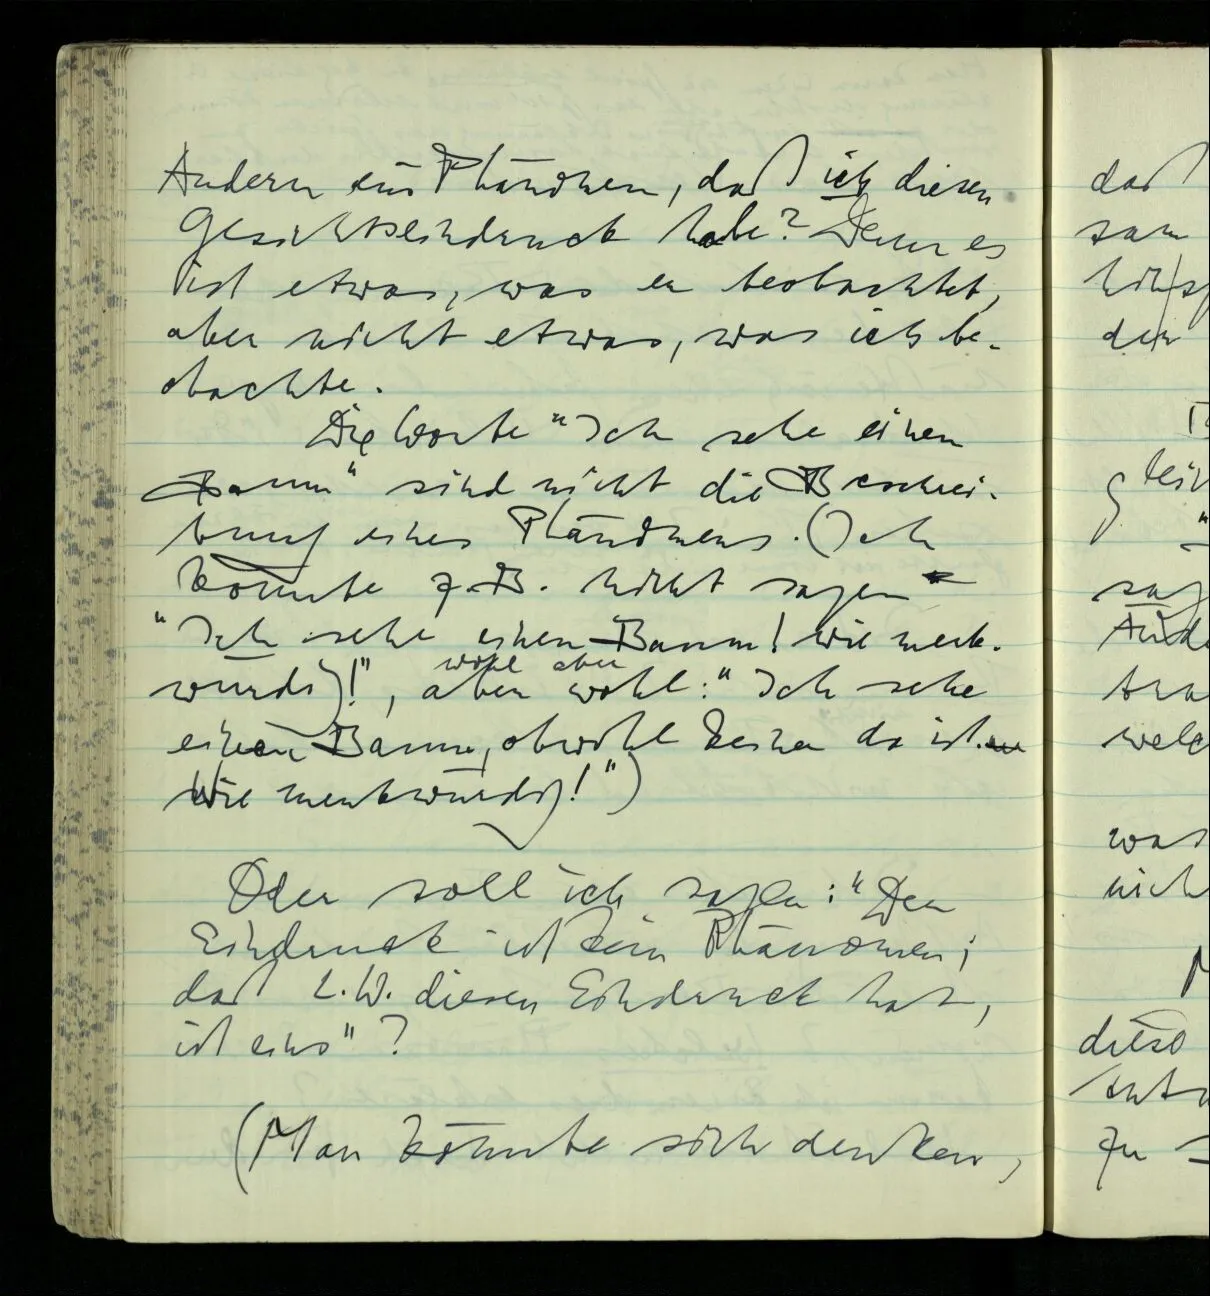 Andern ein Phänomen, daß ich diesen
Gesichtseindruck habe? Denn es
ist etwas, was er beobachtet,
aber nicht etwas, was ich be-
obachte.
Die Worte "Ich sehe einen
Baum" sind nicht die Beschrei-
bung eines Phänomens. (Ich
könnte z.B. nicht sagen
"Ich sehe einen Baum! wie merk-
würdig!", aber wohl: "Ich sehe
wohl aber
einen Baum, obwohl keiner da ist.
Wie merkwürdig!")
Oder soll ich sagen: "Der
Eindruck ist kein Phänomen;
daß L.W. diesen Eindruck hat,
ist eins"?
(Man könnte sich denken,
daß
den
was
zu